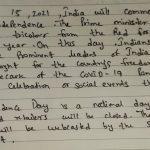 15, 2021, India will comme
dependence. The Prime minister
tricolor from the Red for
year. On this day, Indians
Prominent leaders of India
ught for the country's freedo
because of the Covid-19 Pan
Celebration or social events th
dence Day is a national day
d traders will be closed. The
will be webcasted by the
t.